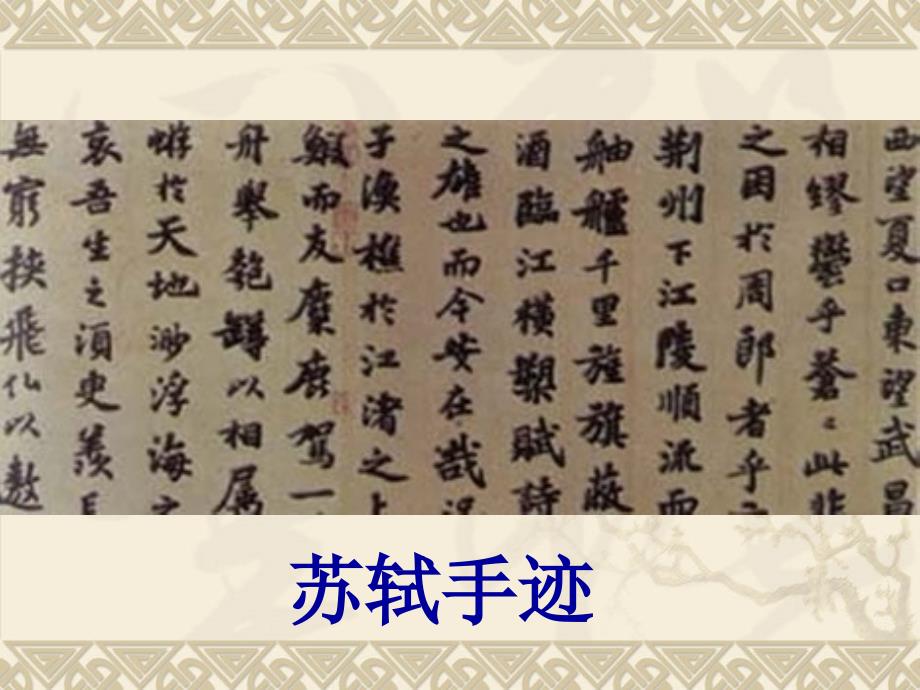 西望夏口東望武昌
相繆欝乎蒼〻此非
之困於周郎者乎
荆州下江陵順流而
舳艫千里旌旗蔽
酒臨江横槊賦詩
之雄也而今安在哉况
子漁樵於江渚之上
鰕而友麋鹿駕一
舟舉匏罇以相属
蜉於天地渺浮海之
哀吾生之湏臾羨長
無窮挾飛仙以遨
苏轼手迹